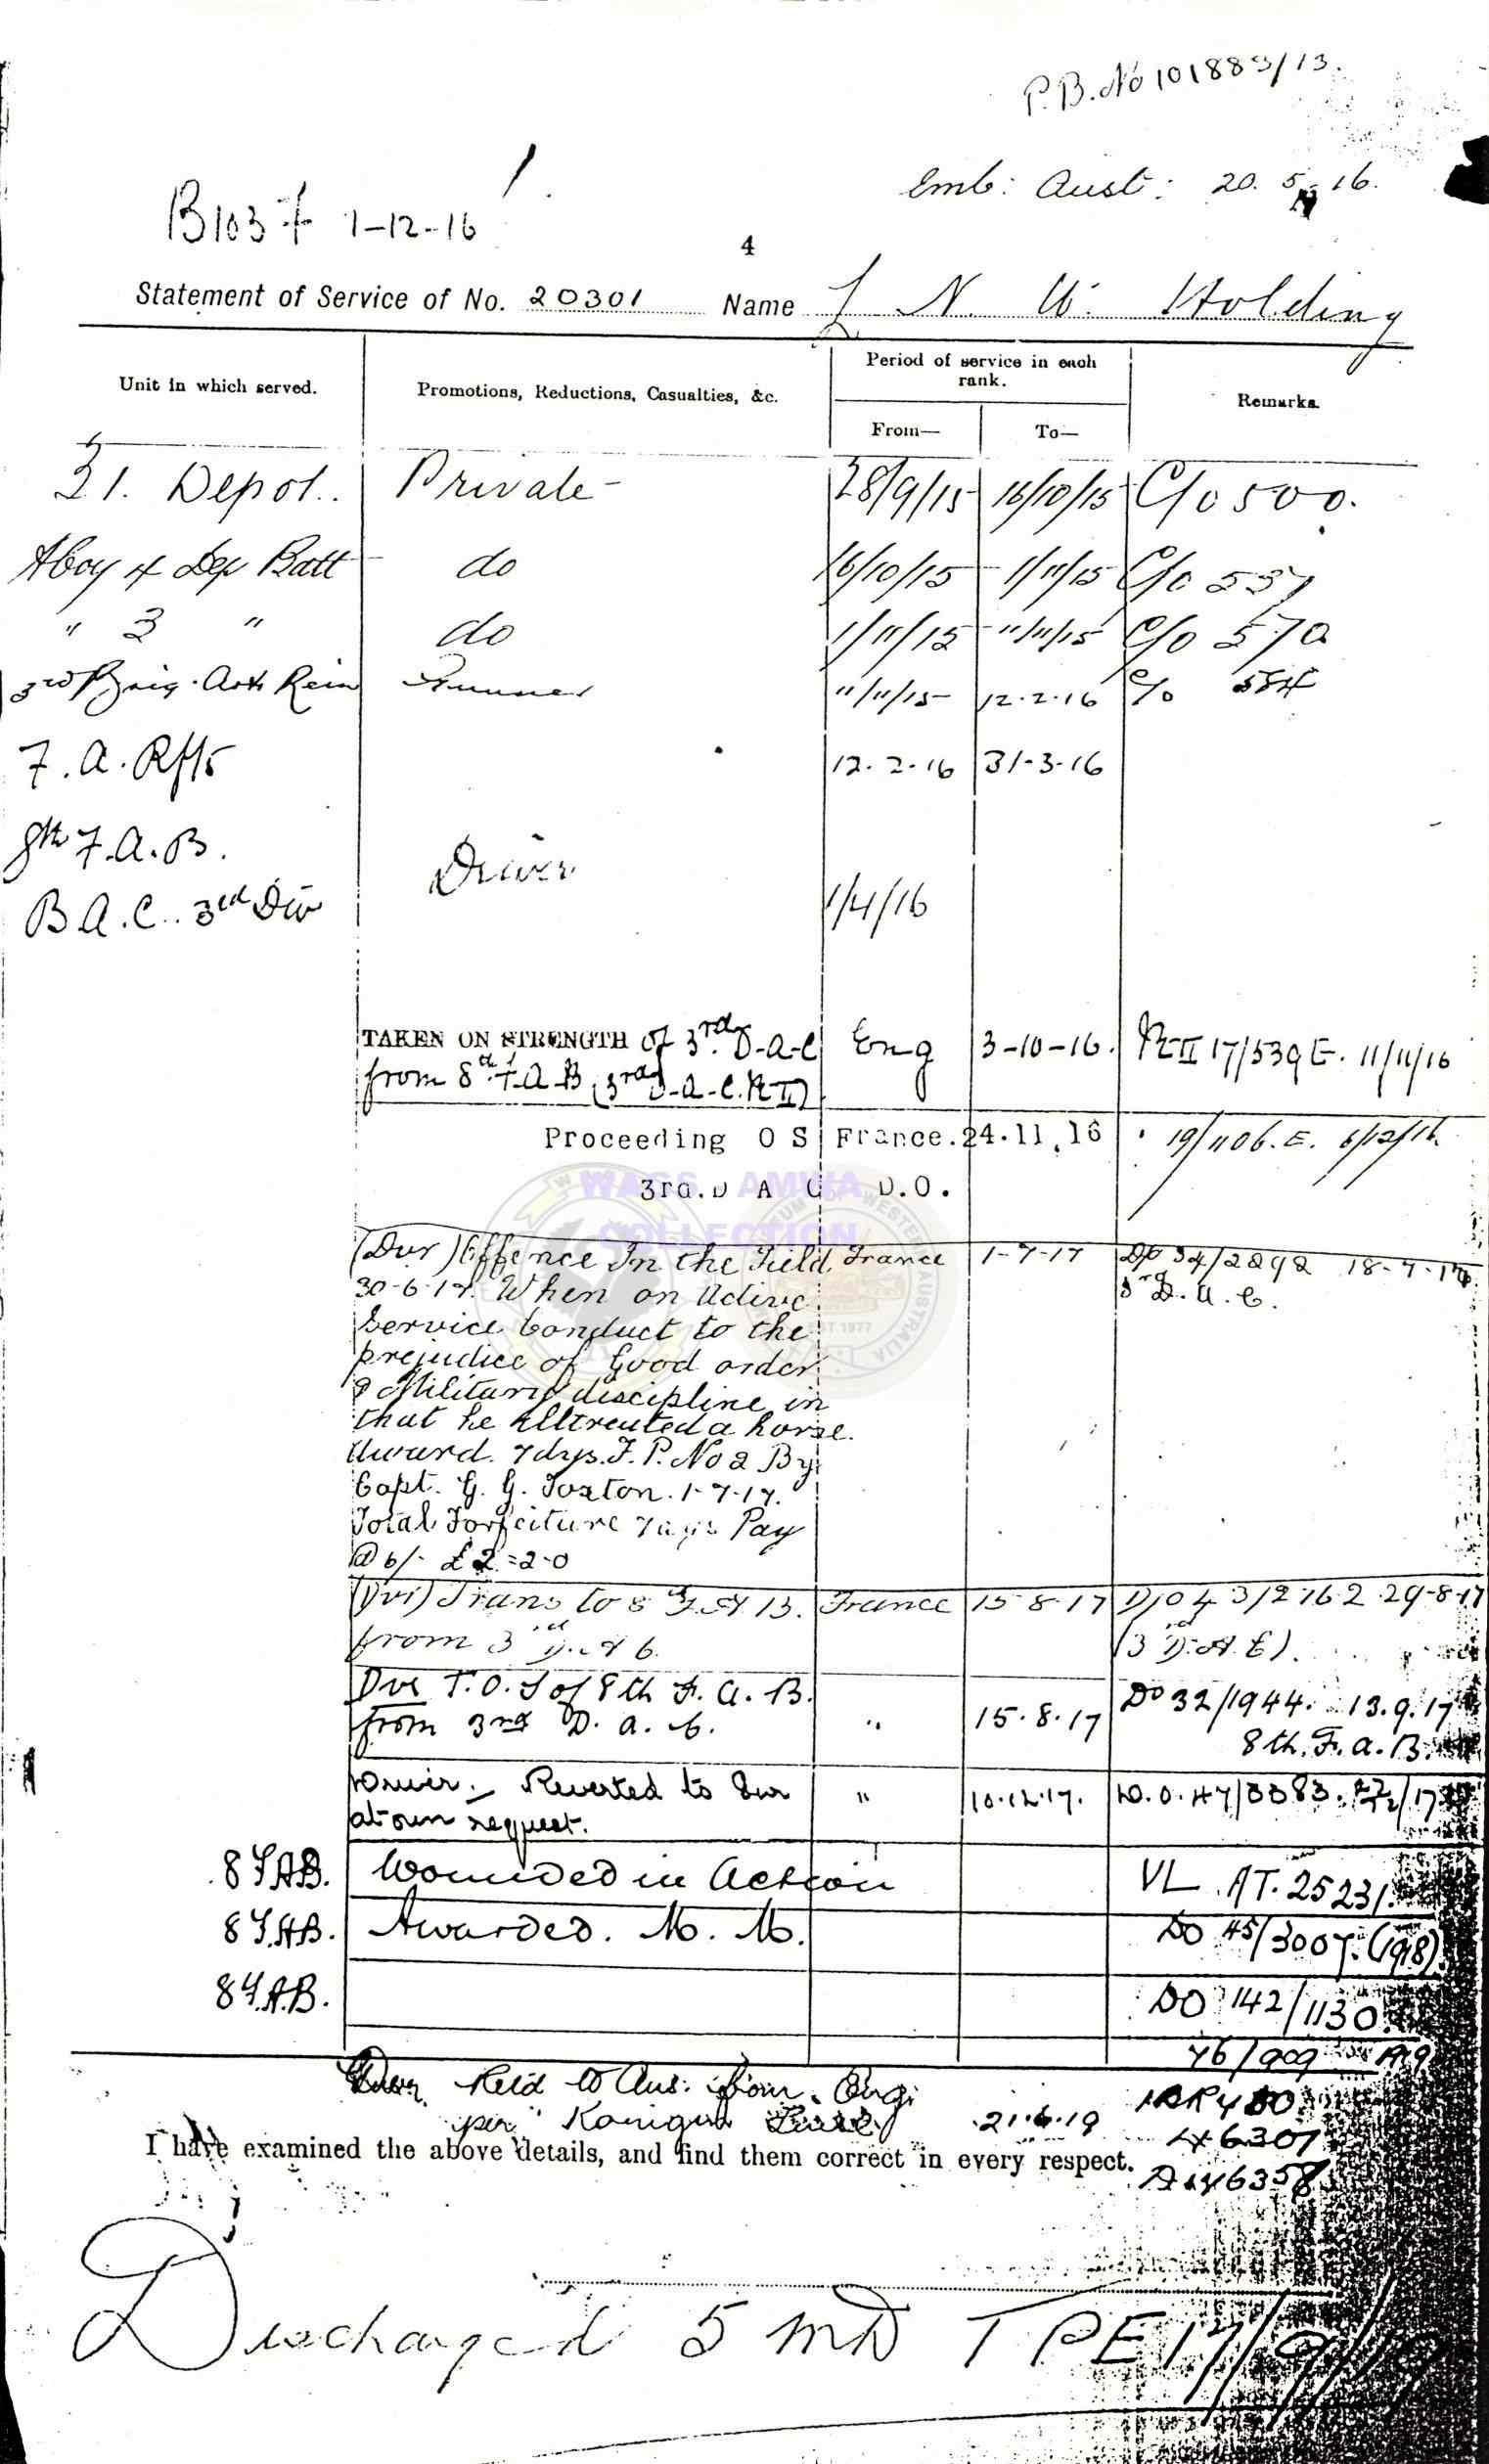 P.B. No 101883/13.
Emb: Aust: 20. 5. 16.
B103 1-12-16
4
Statement of Service of No. 20301 Name L N. W. Holding
Unit in which served. Promotions, Reductions, Casualties, &c. Period of service in each rank. Remarks.
From— To—
31. Depot.. Private - 28/9/15 16/10/15 C/o 500.
A Coy 4 Dep Batt do 16/10/15 - 1/11/15 C/o 537
" 3 " do 1/11/15 - 11/11/15 C/o 570
3rd Brig. Art Rein Gunner 11/11/15- 12.2.16 C/o 584
F. A. Rfts 12. 2. 16 31-3-16
8th F.A.B.
Driver
B A.C.. 3rd Div 1/4/16
TAKEN ON STRENGTH of 3rd D-A-C Eng 3-10-16. KII 17/539 E. 11/11/16
from 8th F.A.B (3rd D-A-C. KII)
Proceeding O S France. 24.11.16 19/1106. E. 6/12/16
3rd. D A C D.O.
WAGS AMWA
COLLECTION
(Dvr) Offence In the Field France 1-7-17 DO 34/2292 18-7-17
30-6-17. When on Active 3rd D. A. C.
Service Conduct to the
prejudice of Good order
& Military discipline in
that he illtreated a horse.
Award. 7 dys. F. P. No 2 By
Capt. G. G. 1-7-17.
Total Forfeiture 7 days Pay
@ 6/- £2=2-0
(Dvr) Trans to 8 F A B. France 15-8-17 DO 43/2762 29-8-17
from 3rd D. A C. (3rd D.A.C).
Dvr T.O.S of 8th F. A. B. DO 32/1944. 13.9.17
from 3rd D. A. C. " 15.8.17 8th. F. A. B.
Driver. - Reverted to Gnr " 10.12.17. D.O. 47/3383.
at own request.
8 F.A.B. Wounded in Action VL AT. 25231.
8 F.A.B. Awarded. M. M. DO 45/3007. (1918)
8 F.A.B. DO 142/1130.
76/909
Retd to Aus: from. Eng:
per Konigin Luise 21.6.19
46307
I have examined the above details, and find them correct in every respect.
Discharged 5 MD TPE 17/9/19